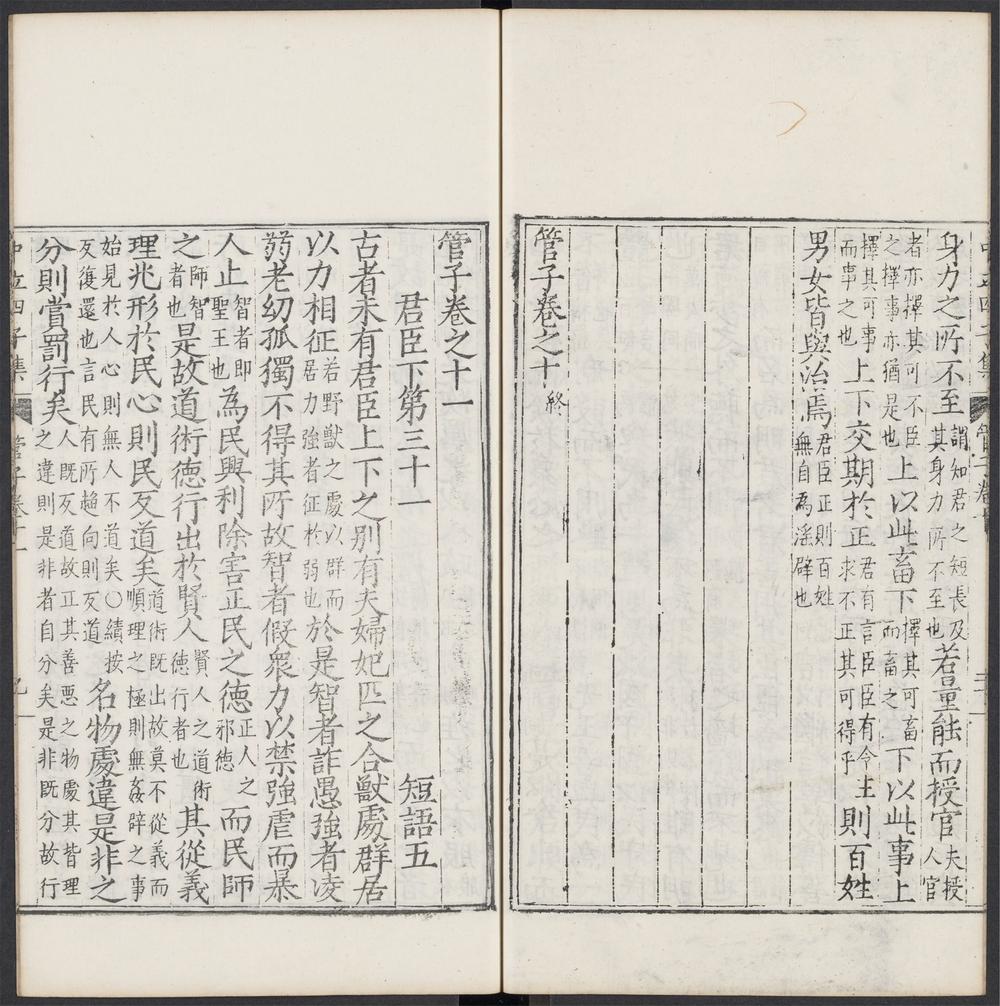 中立四子集 管子卷十 二十一
身力之所不至謂知君之短長及其身力所不至也若量能而授官夫授人官
者亦擇其可不臣之擇事亦猶是也上以此畜下擇其可畜而畜之下以此事上
擇其可事而事之也上下交期於正君有言臣臣有令求不正其可得乎主則百姓
男女皆與治焉君臣正則百姓無自為淫辟也
管子卷之十終
管子卷之十一
君臣下第三十一 短語五
古者未有君臣上下之別有夫婦妃匹之合獸處群居
以力相征若野獸之處以群而居力強者征於弱也於是智者詐愚強者凌
弱老幼孤獨不得其所故智者假衆力以禁強虐而暴
人止智者即聖王也為民興利除害正民之德正人之邪德而民師
之師智者也是故道術德行出於賢人賢人之道術德行者也其從義
理兆形於民心則民反道矣道術既出故莫不從義而順理之極則無姦辟之事
始見於人心則無人不道矣○績按反復還也言民有所趨向則反道名物處違是非之
分則賞罰行矣人既反道故正其善惡之物處其皆理之違則是非者自分矣是非既分故行
中立四子集 管子卷十一